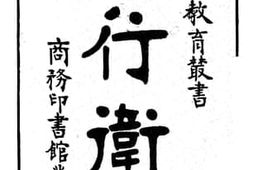 教育叢書
行衛
商務印書館